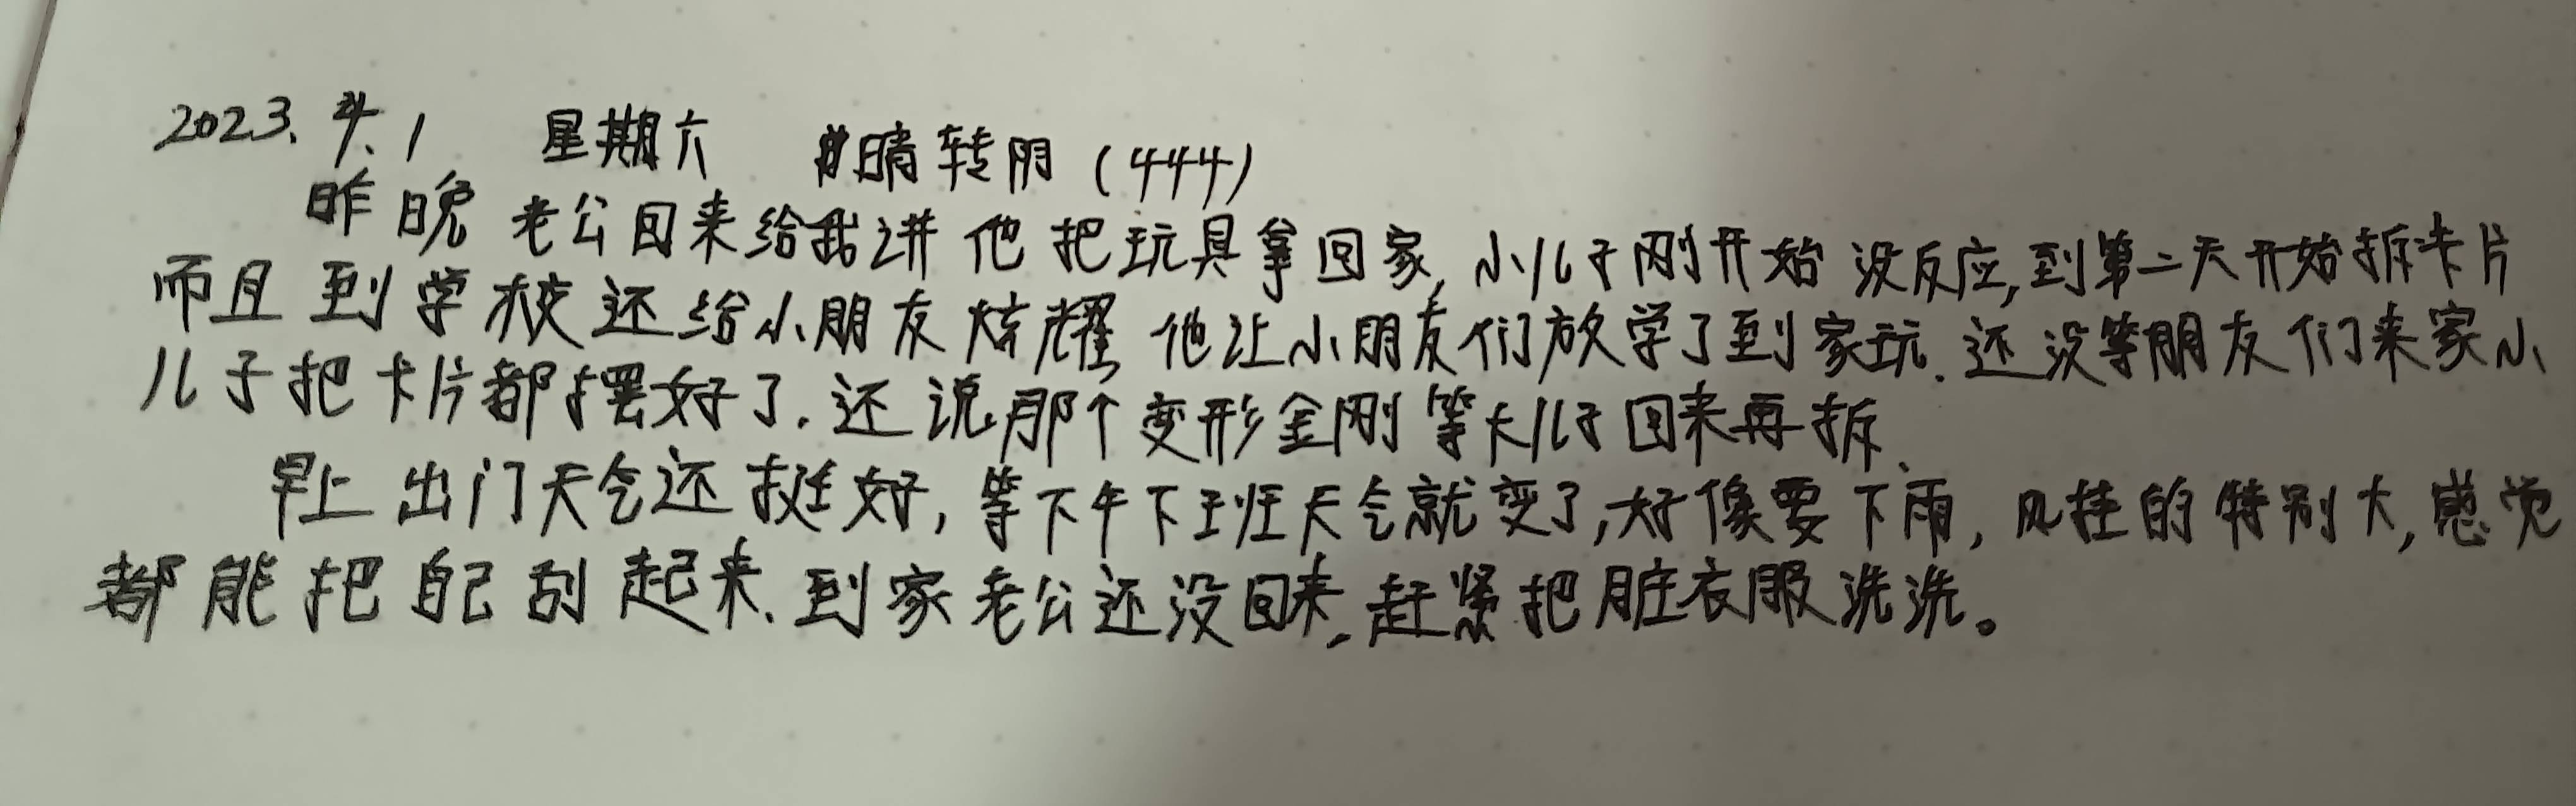 2023.4.1 星期六 晴转阴（444）
昨晚老公回来给我讲他把玩具拿回家,小儿子刚开始没反应,到第二天开始拆卡片
而且到学校还给小朋友炫耀,他让小朋友们放学了到家玩.还没等朋友们来家小
儿子把卡片都摆好了.还说那个变形金刚等大儿子回来再拆.
早上出门天气还挺好,等下午下班天气就变了,好像要下雨,风挂的特别大,感觉
都能把自己刮起来.到家老公还没回来,赶紧把脏衣服洗洗。